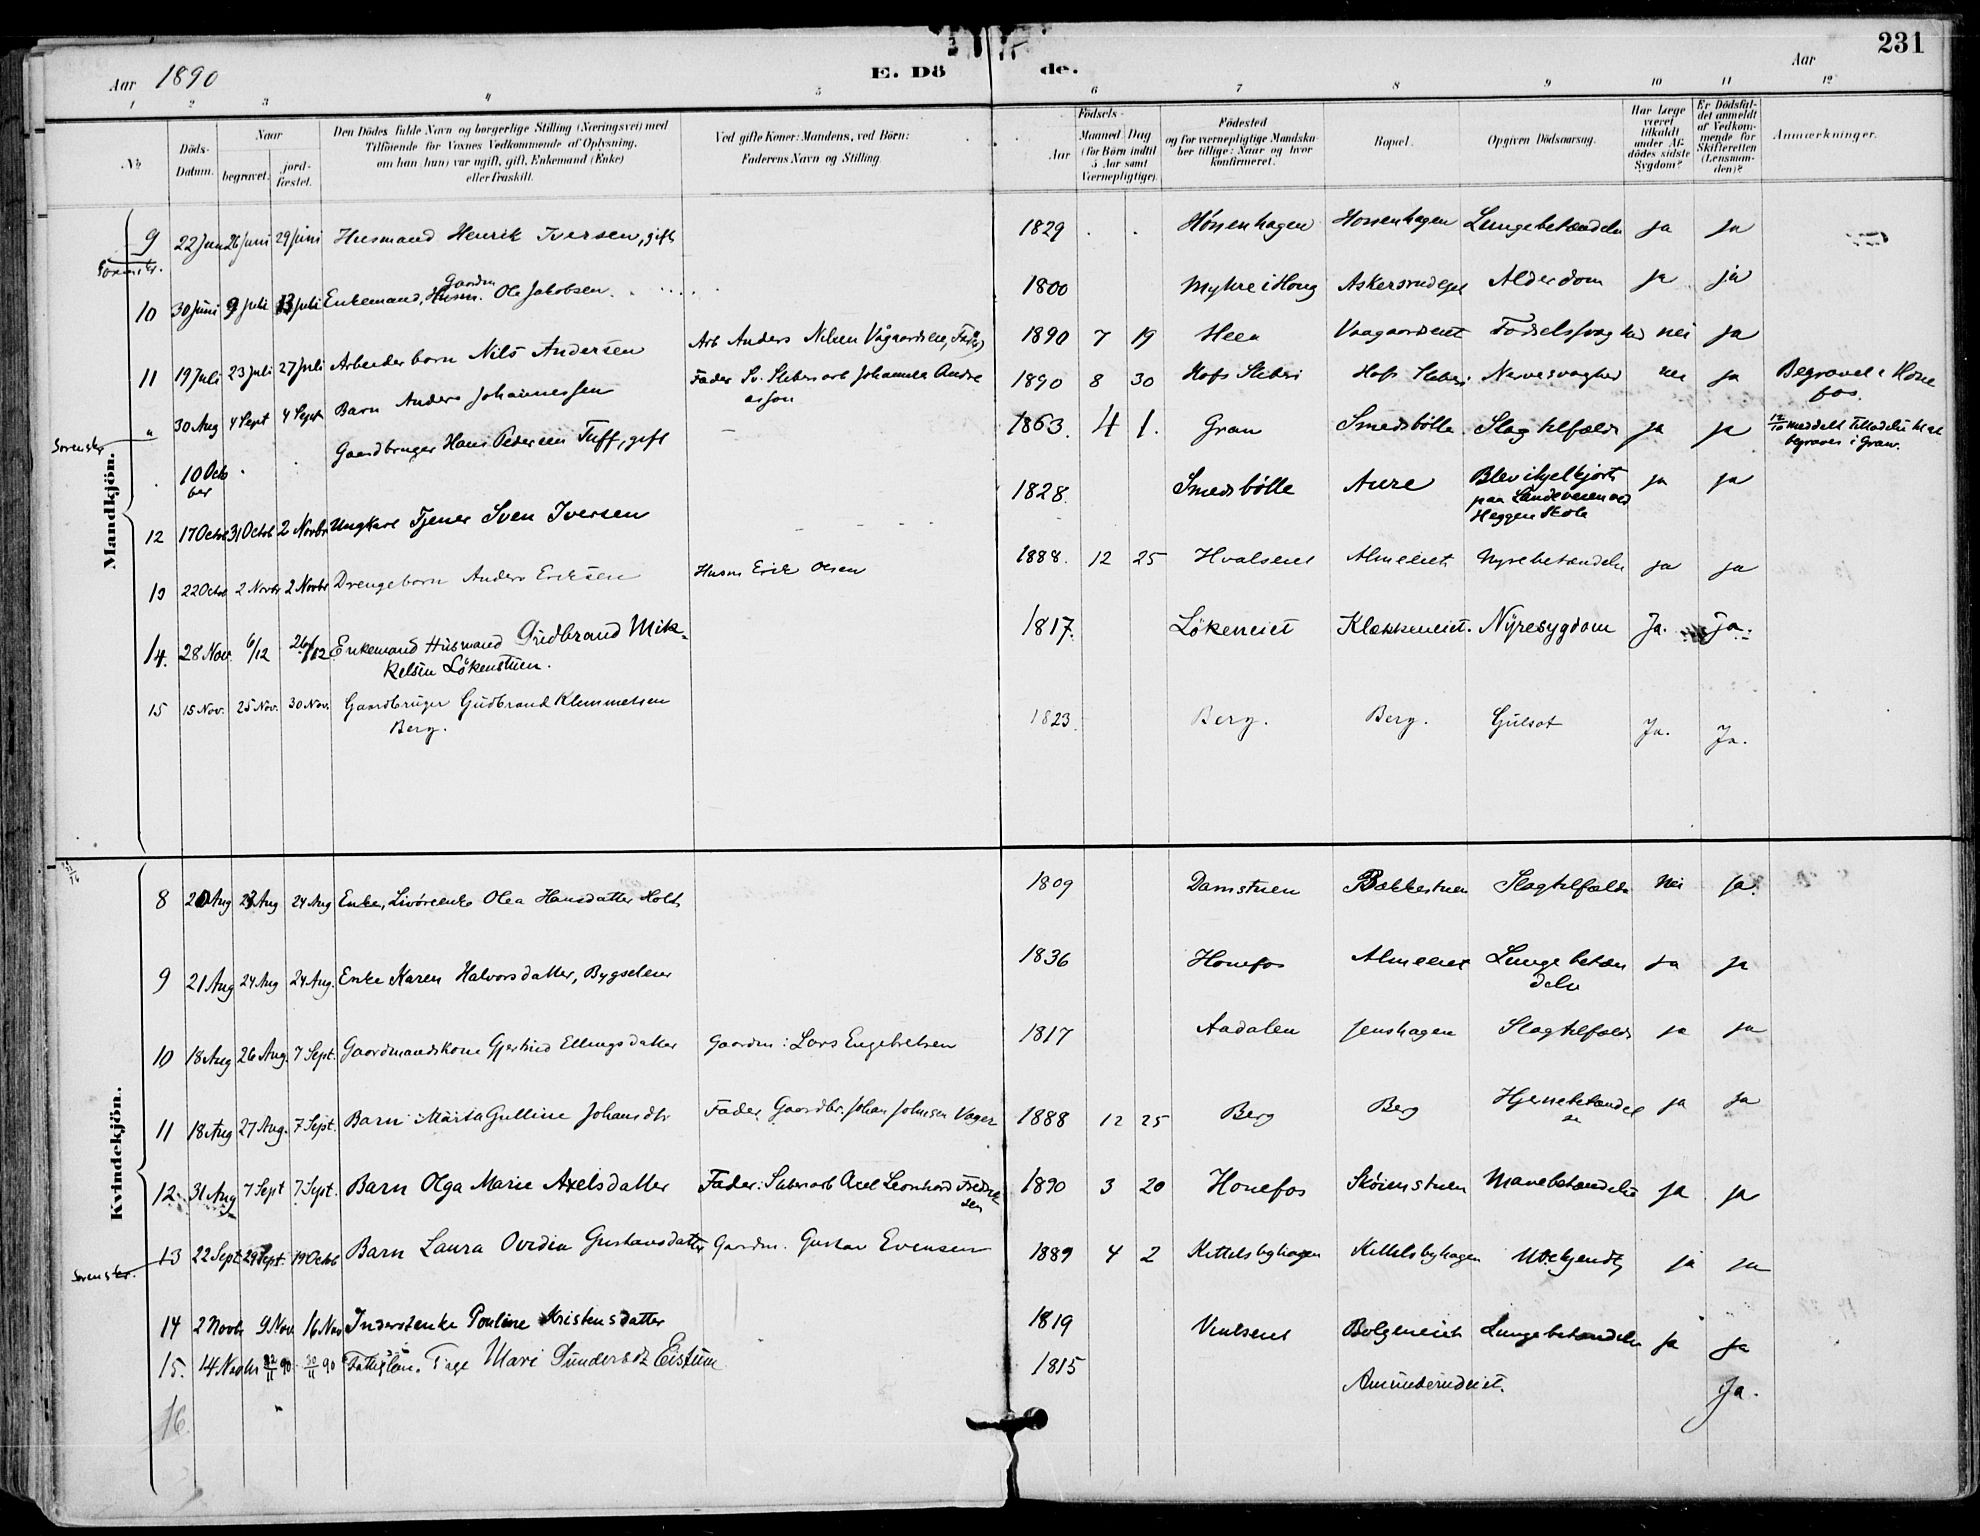 231
Aar 1890
E. Dö de.
Aar
1 2 3 4 5 6 7 8 9 10 11 12
No
Döds-Datum.
Naar
begravet.
jord-fæstet.
Den Dödes fulde Navn og borgerlige Stilling (Næringsvei) med
Tilföiende for Voxnes Vedkommende af Oplysning,
om han (hun) var ugift, gift, Enkemand (Enke)
eller fraskilt.
Ved gifte Koner: Mandens, ved Börn:
Faderens Navn og Stilling.
Födsels-
Aar
Maaned Dag
(for Börn indtil
5 Aar samt
Værnepligtige).
Födested
og for værnepligtige Mandska-
ber tillige: Naar og hvor
konfirmeret.
Bopæl.
Opgiven Dödsaarsag.
Har Læge
været
tilkaldt
under Af-
dödes sidste
Sygdom?
Er Dödsfal-
det anmeldt
af Vedkom-
mende for
Skifteretten
(Lensman-
den)?
Anmærkninger.
Mandkjön.
9 22 Juni 26 Juni 29 Juni Husmand Henrik Iversen, gift 1829 Hossenhagen Lungebetændelse ja ja
10 30 Juni 9 Juli 13 Juli Enkemand, Gaardm. Ole Jakobsen 1800 Myhre i Houg Alderdom ja ja
11 19 Juli 23 Juli 27 Juli Arbeiderbarn Nils Andersen Arb Anders Nilsen 1890 7 19 Heen nei ja
" 30 Aug 4 Sept 4 Sept Barn Anders Johannessen Fader 1890 8 30 Nervesvaghed nei ja Begravet i Hone
fos.
10 Octo
ber Gaardbruger Hans Pedersen Tuff, gift 1863 4 1. Gran Smedsbölle Slagtilfælde ja ja
begraves i Gran.
12 17 Octbr 31 Octbr 2 Novbr Ungkarl Tjener Sven Iversen 1828 Smedsbölle Aure Blev ihjelkjört
paa Landeveien ved
Heggen Skole ja ja
13 22 Octbr 2 Novbr 2 Novbr Drengebarn Anders Eriksen Husm Erik Olsen 1888. 12 25 Almeeiet Nyrebetændelse ja ja
14. 28 Nov. 6/12 26/12 Enkemand Husmand Gudbrand Mik-
kelsen Lökenstuen. 1817. Lökeneiet Klækkeneiet. Nyresygdom Ja. Ja.
15 15 Nov. 25 Nov. 30 Nov. Gaardbruger Gudbrand Klemmetsen
Berg. 1823 Berg. Berg. Gulsot Ja. Ja.
Kvindekjön.
8 24 Aug Enke, Olea Hansdatter Holt 1809 Damstuen Bækkestuen Slagtilfælde Nei ja.
9 21 Aug 24 Aug 24 Aug. Enke Karen Halvorsdatter, 1836 Honefos Almeeiet Lungebetæn
delse ja ja
10 18 Aug 26 Aug. 7 Sept. Gaardmandskone Gjertrud Ellingsdatter Gaardm: Lars Engebretsen 1817 Aadalen Jenshagen Slagtilfælde ja ja
11 18 Aug 27 Aug. 7 Sept. Barn Marta Gulline Johansdtr Fader Gaardbr. Johan Johnsen 1888 12 25 Berg Berg Hjernebetændel
se ja ja
12. 31 Aug 7 Sept 7 Sept. Barn Olga Marie Axelsdatter Fader: Sliberiarb Axel Leonhard Fredrik
sen 1890 3 20 Honefos Sköienstuen Mavebetændelse ja ja
13 22 Sept. 29 Sept. 19 Octbr Barn Laura Ovedia Gustavsdatter Gaardm. Gustav Evensen 1889 4 2 Kittelsbyhagen Kittelsbyhagen Ubekjendt ja ja
14 2 Novbr 9 Nov. 16 Nov Inderstenke Pauline Kristensdatter 1819 Lungebetændelse ja ja
15. 14 Novbr 22/11 90. 30/11 90 Fattiglem. Mari Gundersdtr 1815 Ja.
16.